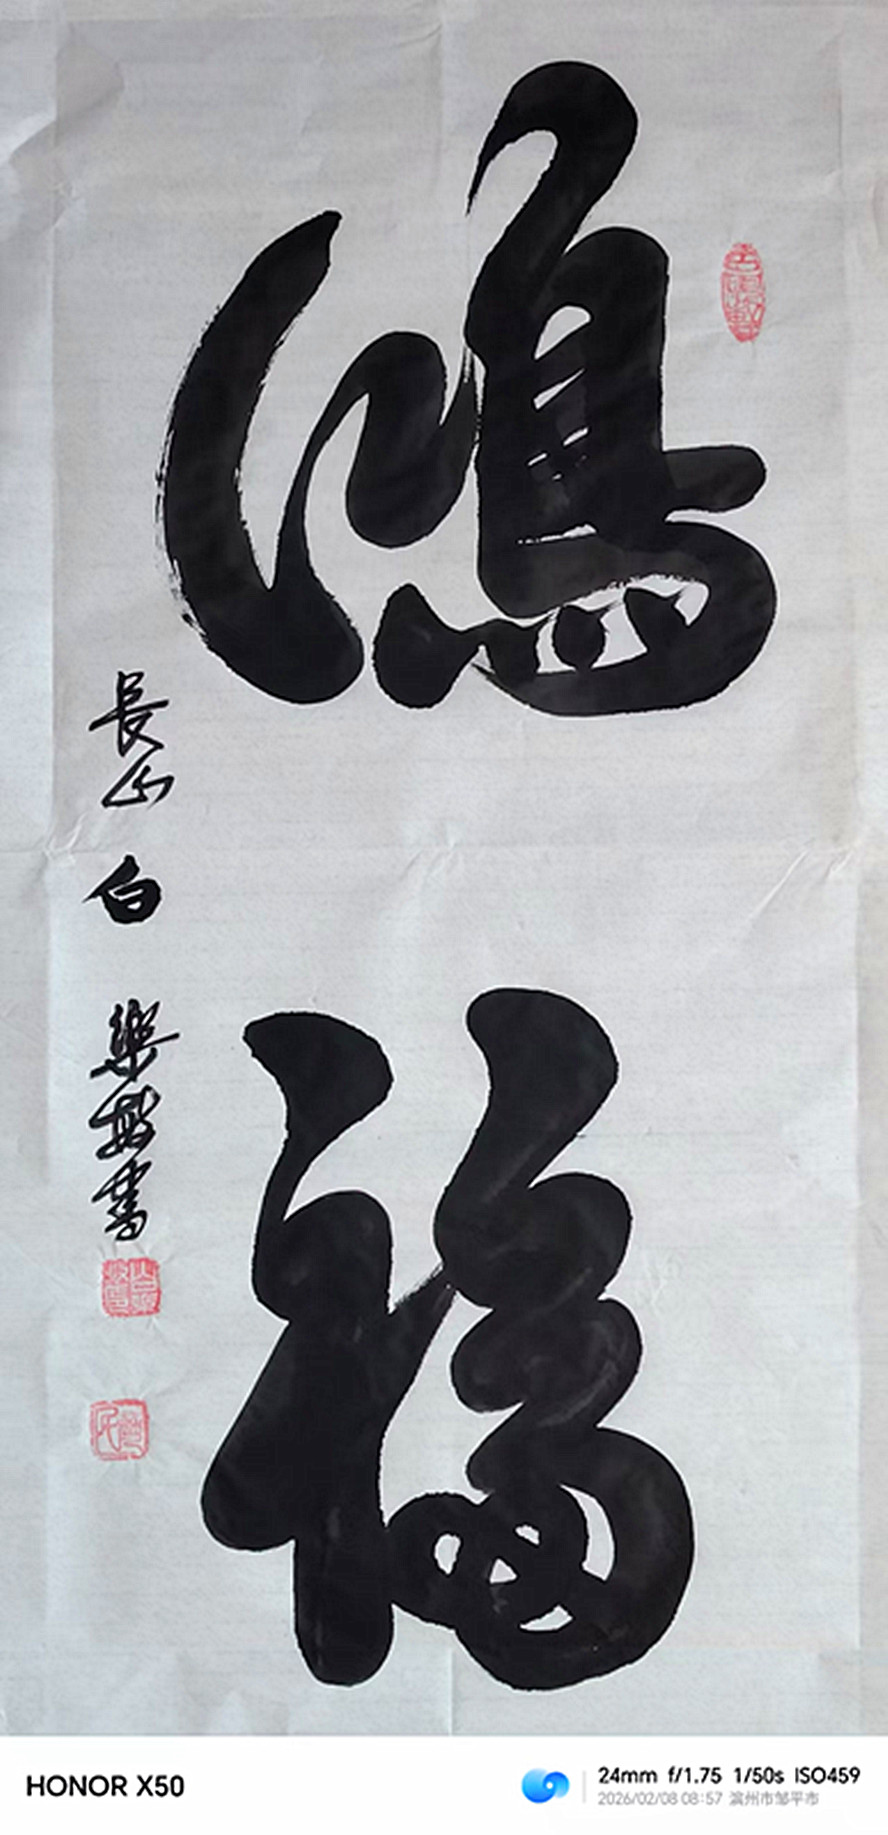 鴻福
長山 白 樂敏書
HONOR X50
24mm f/1.75 1/50s ISO459
2026/02/08 08:57 滨州市邹平市